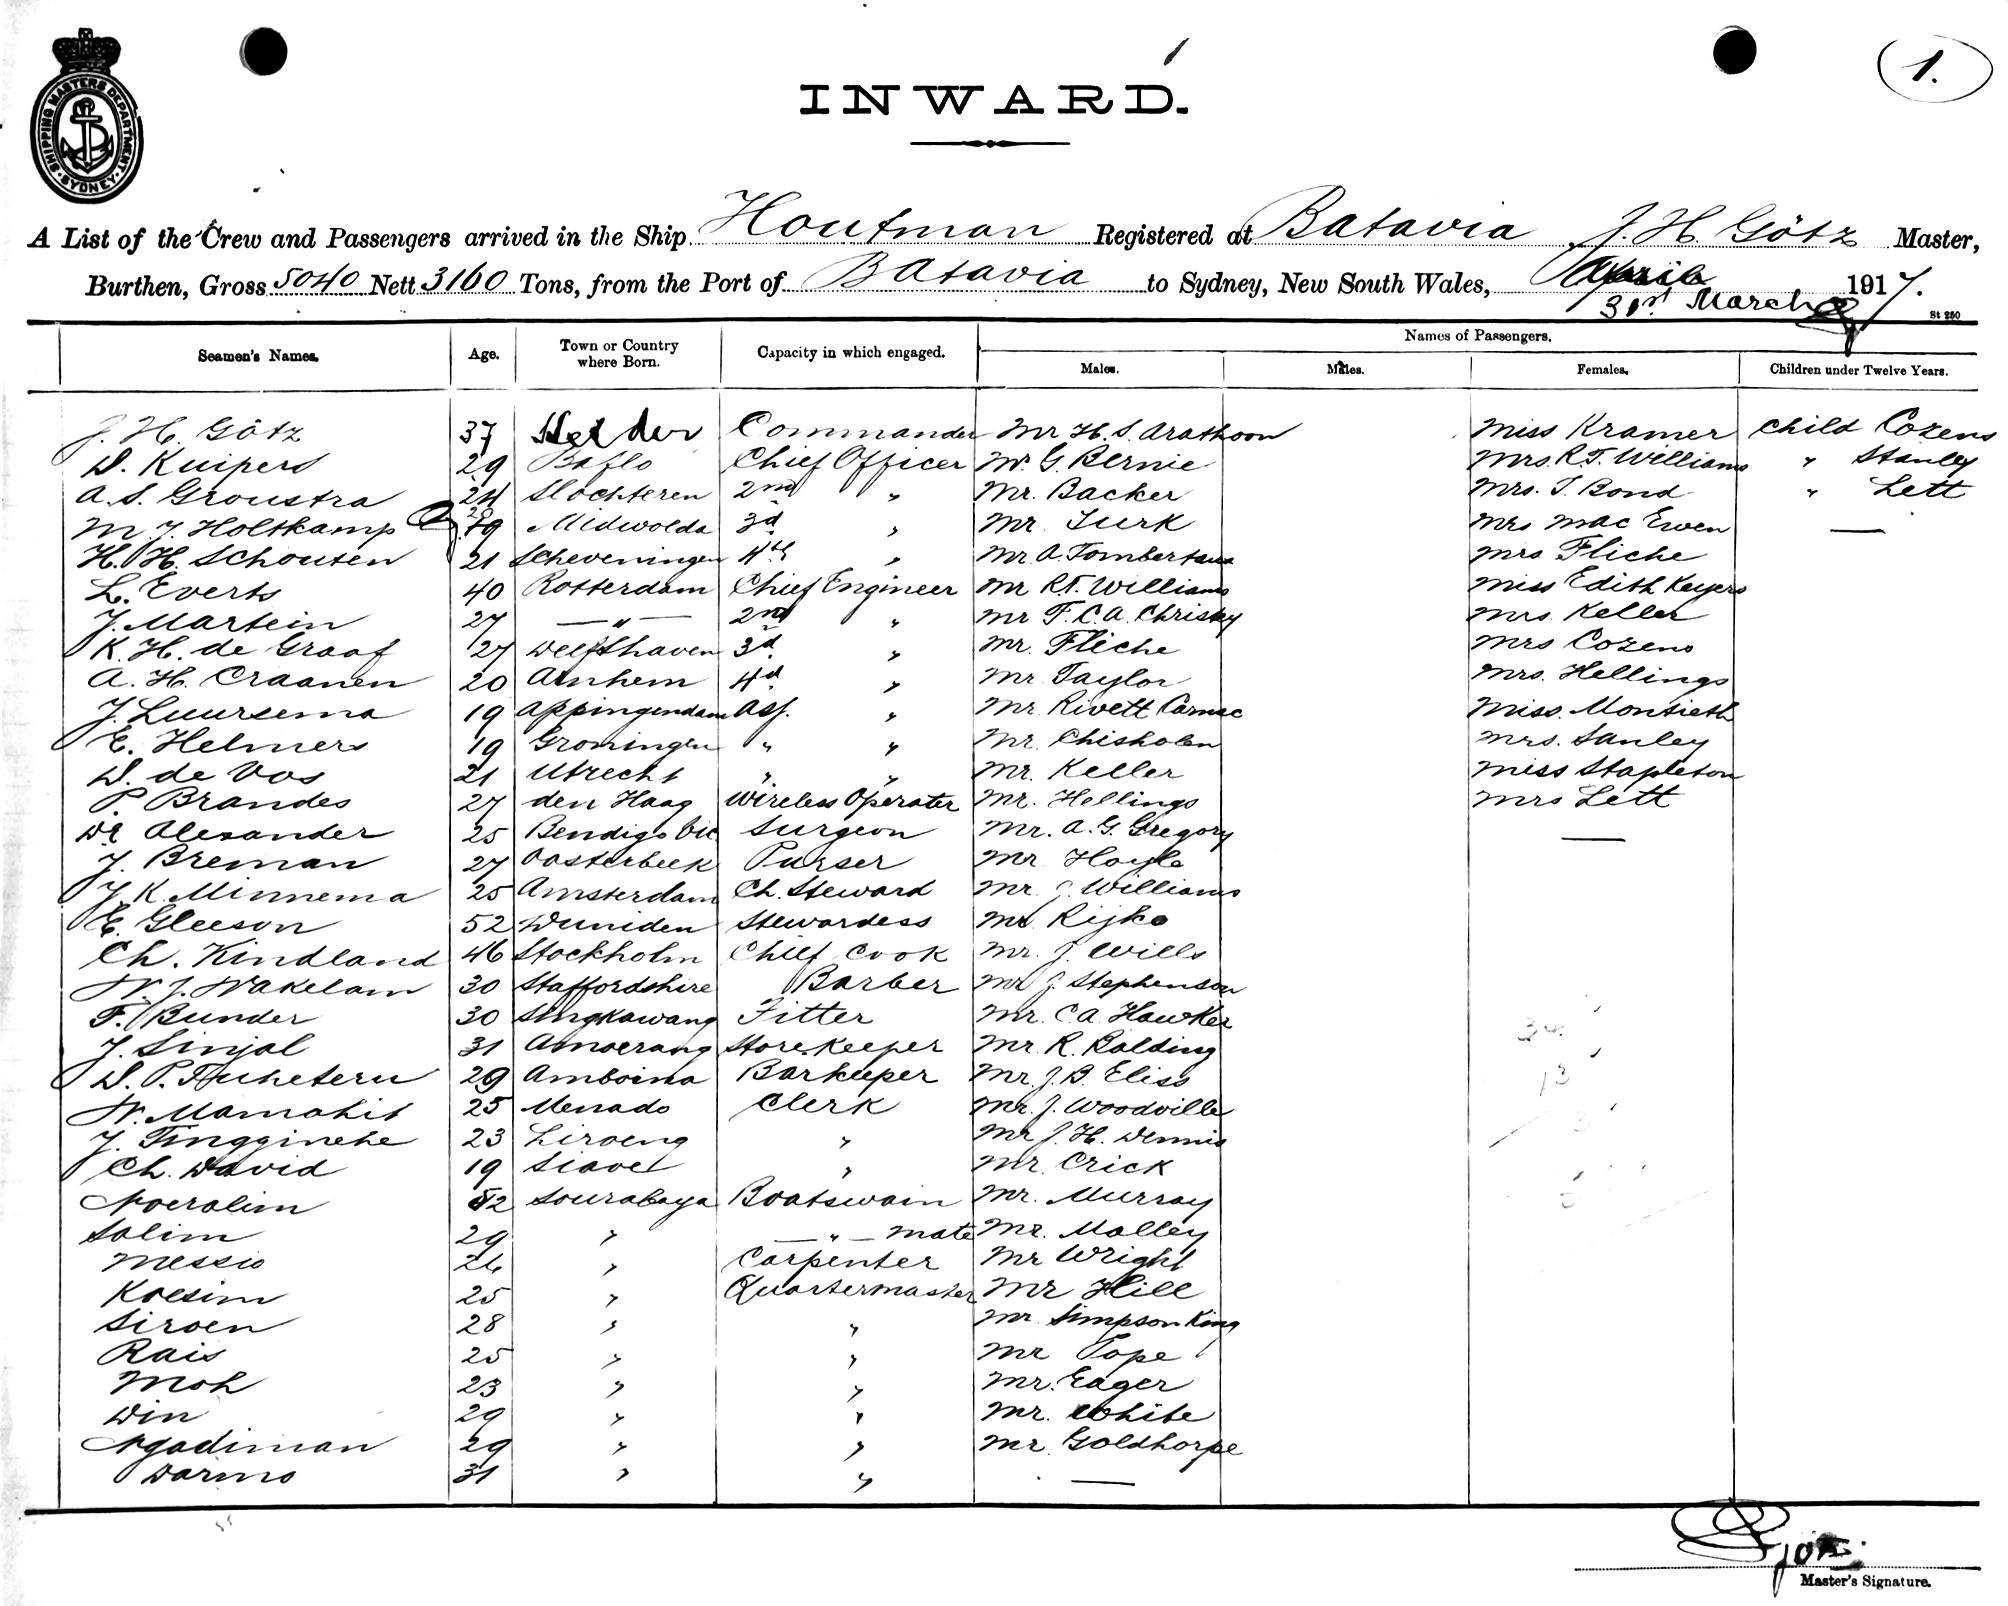 1.
SHIPPING MASTERS DEPARTMENT · SYDNEY ·
INWARD.
A List of the Crew and Passengers arrived in the Ship Houtman Registered at Batavia J. H. Götz Master,
Burthen, Gross 5040 Nett 3160 Tons, from the Port of Batavia to Sydney, New South Wales, April 1917.
31st March
St 250
Seamen's Names. Age. Town or Country where Born. Capacity in which engaged. Names of Passengers.
Males. Males. Females. Children under Twelve Years.
J. H. Götz 37 Helder Commander Mr H. S. Arathoon Miss Kramer Child Cozens
D. Kuipers 29 Baflo Chief Officer Mr G. Bernie Mrs. R.T. Williams " Stanley
A. S. Groustra 24 Slochteren 2nd " Mr. Backer Mrs. T. Bond " Lett
M. J. Holtkamp 19 Midwolda 3d " Mr. Turk Mrs Mac Ewen —
H. H. Schouten 21 Scheveningen 4th " Mr A. Tombertans Mrs Fliche
L. Everts 40 Rotterdam Chief Engineer Mr R.T. Williams Miss Edith Keyers
J. Martein 27 — " — 2nd " Mr F. C. A. Chrisky Mrs. Keller
K. H. de Graaf 27 Delfshaven 3d " Mr. Fliche Mrs Cozens
A. H. Craanen 20 Arnhem 4d " Mr Taylor Mrs. Hellings
J. Luursema 19 Appingendam Ass. " Mr. Rivett Carnac Miss. Montieth
E. Helmers 19 Groningen " " Mr. Chisholm Mrs. Sanley
D. de Vos 21 Utrecht " " Mr. Keller Miss Stapleton
P. Brandes 27 den Haag Wireless Operater Mr. Hellings Mrs Lett
Dr Alexander 25 Bendigo Vic Surgeon Mr. A. G. Gregory —
J. Breman 27 Oosterbeek Purser Mr Hoyle
J. K. Minnema 25 Amsterdam Ch. Steward Mr. J. Williams
E. Gleeson 52 Duniden Stewardess Mr Rijke
Ch. Kindland 46 Stockholm Chief Cook Mr. J. Wills
W. J. Wakelam 30 Staffordshire Barber Mr J. Stephenson
F. Bunder 30 Singkawang Fitter Mr. C. A. Hawker
J. Sinjal 31 Amoerang Storekeeper Mr. R. Balding
D. P. Tuheteru 29 Amboina Barkeeper Mr. J. B. Eliss
W. Mamahit 25 Menado Clerk Mr. J. Woodville
J. Tinggинehe 23 Liroeng " Mr J. H. Dennis
Ch. David 19 Siauw " Mr. Crick
Noeralim 52 Sourabaya Boatswain Mr. Murray
Salim 29 " — " — mate Mr. Malley
Messio 26 " Carpenter Mr Wright
Koesim 25 " Quartermaster Mr Hill
Siroen 28 " " Mr. Simpson King
Rais 25 " " Mr Pope
Moh 23 " " Mr. Eager
Din 29 " " Mr. White
Ngadiman 29 " " Mr. Goldhorpe
Darmo 31 " " —
Master's Signature.